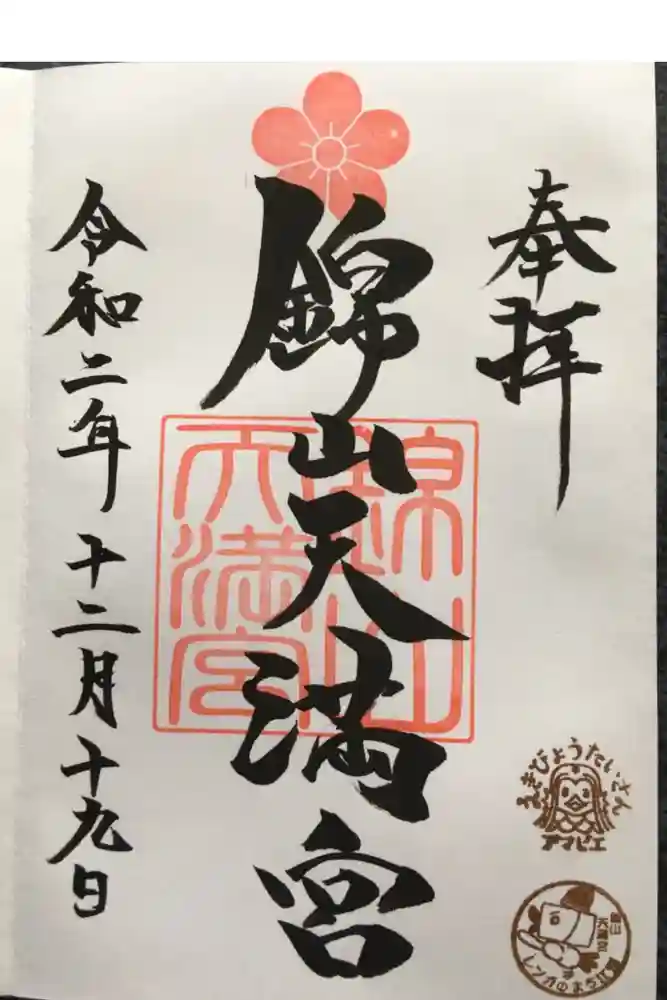 奉拝
錦山天満宮
令和二年十二月十九日
錦山
天満宮
えきびょうたいさん
アマビエ
錦山
天満宮
レンガのまち江別